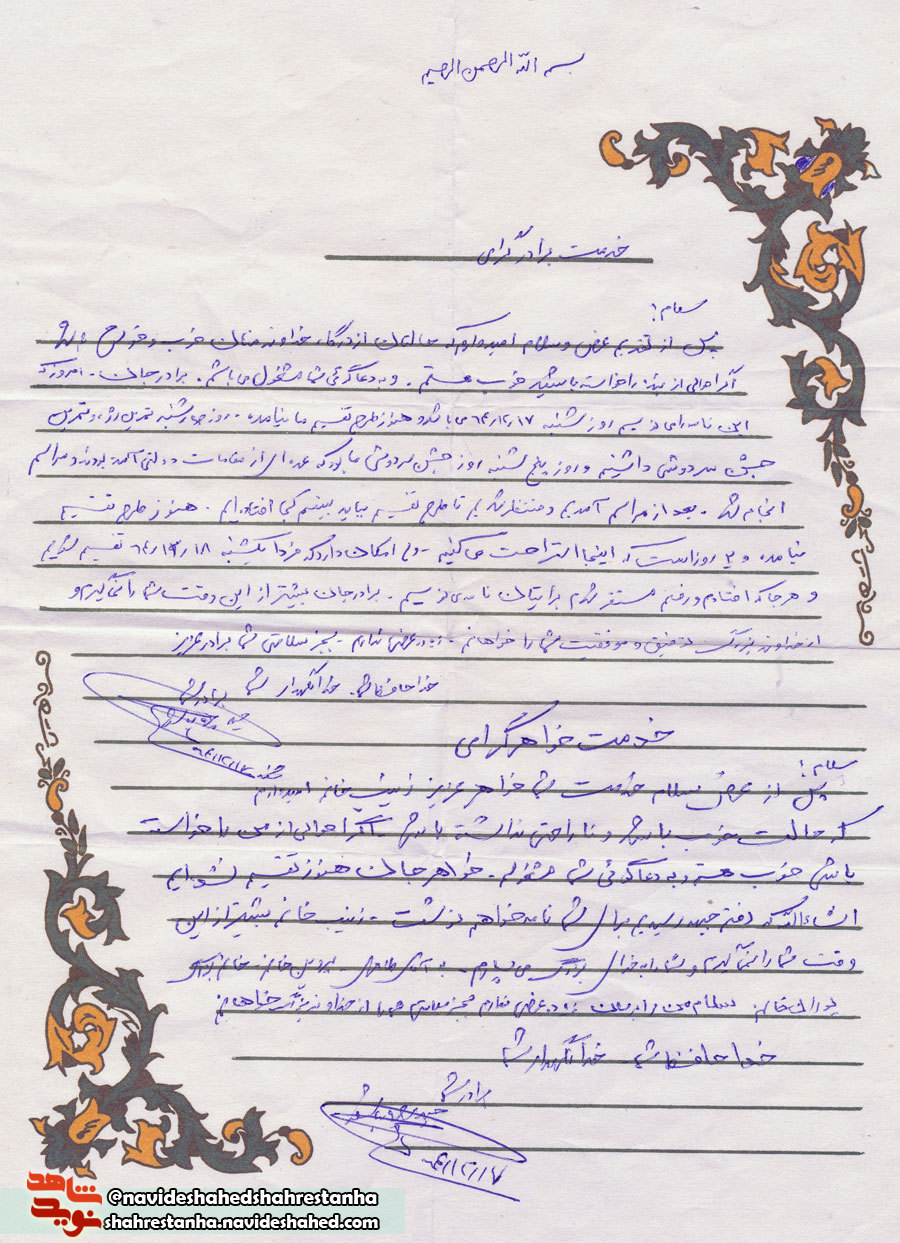 بسم الله الرحمن الرحیم
خدمت برادر گرامی
سلام!
پس از تقدیم عرض و سلام امیدوارم که حالتان از درگاه خداوند منان خوب و خرم
اگر احوالی از بنده را خواسته باشید خوب هستم . و به دعاگوئی شما مشغول می باشم . برادر جان . امروز که
این نامه را می نویسم روز شنبه ۶۴/۱۲/۱۷ می باشد و هنوز طرح تقسیم ما نیامده . روز چهارشنبه تمرین رژه و تمرین
جشن سردوشی داشتیم و روز پنج شنبه روز جشن سردوشی ما بود که عده ای از مقامات دولتی آمده بودند و مراسم
انجام شد . بعد از مراسم آمدیم و منتظر شدیم تا طرح تقسیم بیاید ببینیم کجا افتاده ایم . هنوز طرح تقسیم
نیامده و ۲ روز است که اینجا استراحت می کنیم . ولی امکان دارد که فردا یکشنبه ۱۸ تقسیم شویم
و هر جا که افتادم و رفتم مستقر شدم برایتان نامه می نویسم . برادر جان بیشتر از این وقت شما را نمی گیرم و
از خداوند بزرگ توفیق و موفقیت شما را خواهانم . دیگر عرضی ندارم . بجز سلامتی شما برادر عزیز
خداحافظ شما . خدا نگهدار شما برادر شما
شنبه ۶۴/۱۲/۱۷
خدمت خواهر گرامی
سلام!
پس از عرض سلام خدمت شما خواهر عزیز زینب خانم امیدوارم
که حالت خوب باشد و ناراحتی نداشته باشی . اگر احوالی از من را خواسته
باشی خوب هستم و به دعاگوئی شما مشغولم . خواهر جان هنوز تقسیم نشده ایم
انشاءالله که دفترچه رسیدیم برای شما نامه خواهم نوشت . زینب خانم بیشتر از این
وقت شما را نمی گیرم و شما را به خدای بزرگ می سپارم . پروین خانم
خانم سلام من را برسان عرضی ندارم بجز سلامتی شما را از خداوند بزرگ خواهانم
خداحافظ شما . خدا نگهدار شما
برادر شما
۶۴/۱۲/۱۷
نوید شاهد
@navideshahedshahrestanha
shahrestanha.navideshahed.com